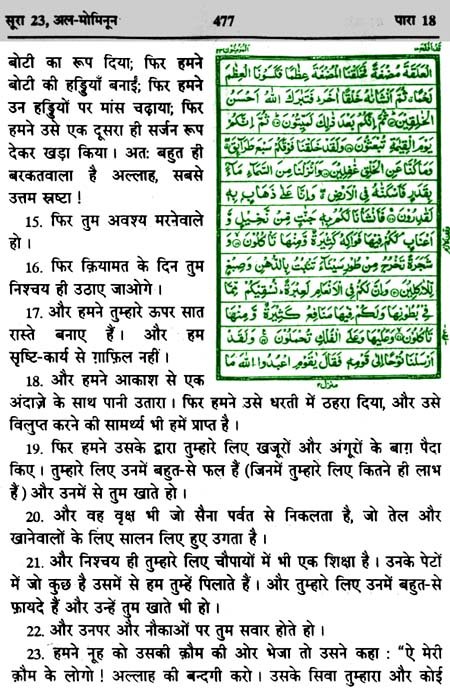 सूरा 23, अल-मोमिनून 477 पारा 18
बोटी का रूप दिया; फिर हमने
बोटी की हड्डियाँ बनाईं; फिर हमने
उन हड्डियों पर मांस चढ़ाया; फिर
हमने उसे एक दूसरा ही सर्जन रूप
देकर खड़ा किया। अत: बहुत ही
बरकतवाला है अल्लाह, सबसे
उत्तम स्रष्टा!
15. फिर तुम अवश्य मरनेवाले
हो।
16. फिर क़ियामत के दिन तुम
निश्चय ही उठाए जाओगे।
17. और हमने तुम्हारे ऊपर सात
रास्ते बनाए हैं। और हम
सृष्टि-कार्य से ग़ाफ़िल नहीं।
18. और हमने आकाश से एक
अंदाज़े के साथ पानी उतारा। फिर हमने उसे धरती में ठहरा दिया, और उसे
विलुप्त करने की सामर्थ्य भी हमें प्राप्त है।
19. फिर हमने उसके द्वारा तुम्हारे लिए खजूरों और अंगूरों के बाग़ पैदा
किए। तुम्हारे लिए उनमें बहुत-से फल हैं (जिनमें तुम्हारे लिए कितने ही लाभ
हैं) और उनमें से तुम खाते हो।
20. और वह वृक्ष भी जो सैना पर्वत से निकलता है, जो तेल और
खानेवालों के लिए सालन लिए हुए उगता है।
21. और निश्चय ही तुम्हारे लिए चौपायों में भी एक शिक्षा है। उनके पेटों
में जो कुछ है उसमें से हम तुम्हें पिलाते हैं। और तुम्हारे लिए उनमें बहुत-से
फ़ायदे हैं और उन्हें तुम खाते भी हो।
22. और उनपर और नौकाओं पर तुम सवार होते हो।
23. हमने नूह को उसकी क़ौम की ओर भेजा तो उसने कहा : “ऐ मेरी
क़ौम के लोगो! अल्लाह की बन्दगी करो। उसके सिवा तुम्हारा और कोई
العلقة مضغة فخلقنا المضغة عظما فكسونا العظم
لحما ثم انشأنه خلقا اخر فتبرك الله احسن
الخلقين ثم انكم بعد ذلك لميتون ثم انكم
يوم القيمة تبعثون ولقد خلقنا فوقكم سبع طرائق
وما كنا عن الخلق غفلين وانزلنا من السماء ماء
بقدر فاسكنه في الارض وانا على ذهاب به
لقدرون فانشأنا لكم به جنت من نخيل و
اعناب لكم فيها فواكه كثيرة ومنها تأكلون و
شجرة تخرج من طور سيناء تنبت بالدهن وصبغ
للاكلين وان لكم في الانعام لعبرة نسقيكم مما
في بطونها ولكم فيها منافع كثيرة ومنها
تأكلون وعليها وعلى الفلك تحملون ولقد
ارسلنا نوحا الى قومه فقال يقوم اعبدوا الله ما